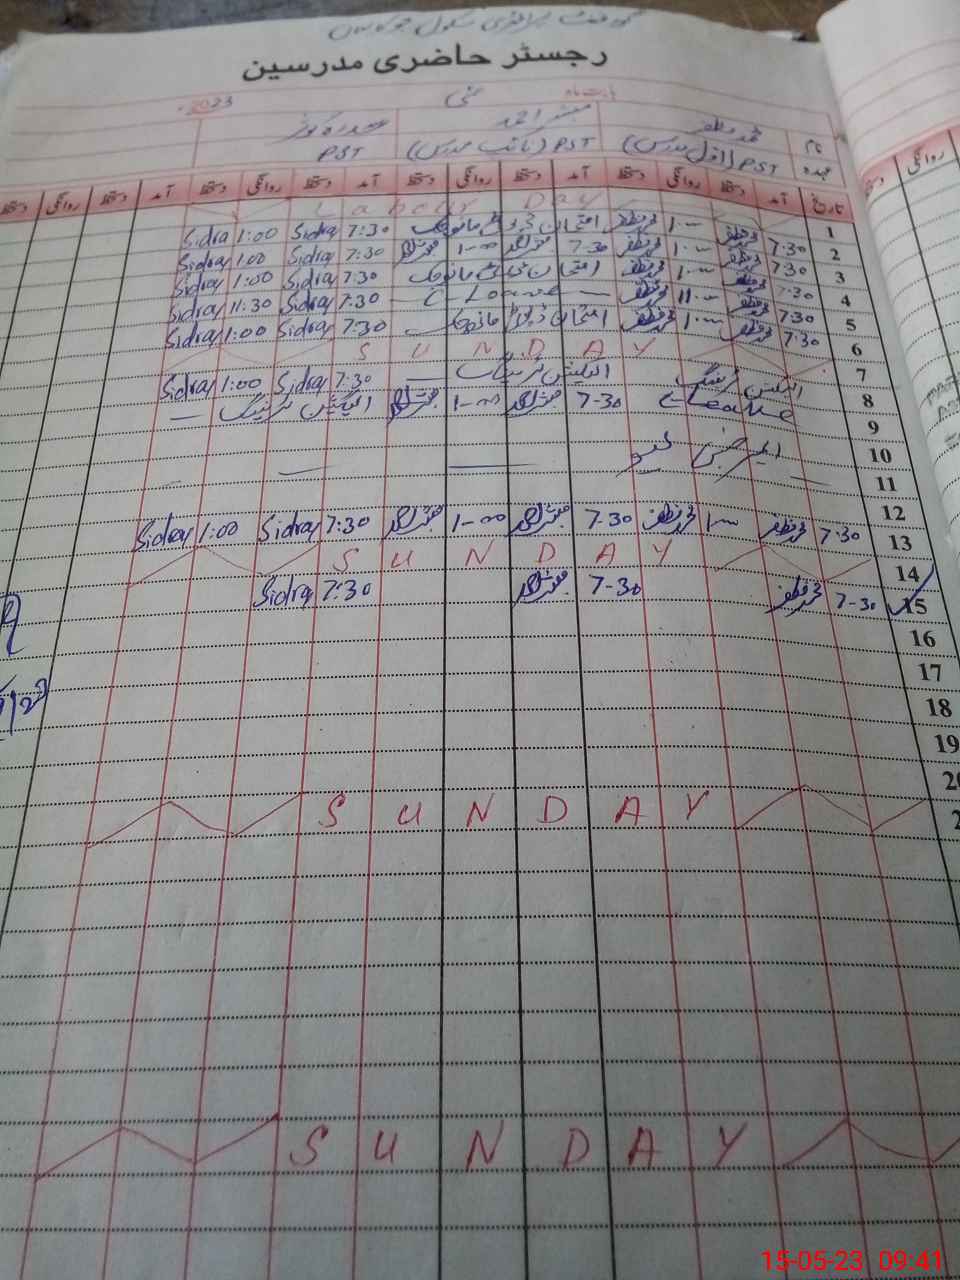 گورنمنٹ پرائمری سکول
رجسٹر حاضری مدرسین
بابت ماہ مئی 2023
نام محمد مظفر مبشر احمد سدرہ کوثر
عہدہ PST (اول مدرس) PST (نائب مدرس) PST
تاریخ آمد دستخط روانگی دستخط آمد دستخط روانگی دستخط آمد دستخط روانگی دستخط آمد دستخط روانگی دستخط
1 Labour Day
2 7:30 محمد مظفر 1:00 محمد مظفر امتحان ڈیوٹی Sidra 7:30 Sidra 1:00
3 7:30 محمد مظفر 1:00 محمد مظفر 7-30 مبشر احمد 1-00 مبشر احمد 7:30 Sidra 1:00 Sidra
4 7:30 محمد مظفر 1:00 محمد مظفر امتحان ڈیوٹی 7:30 Sidra 1:00 Sidra
5 7:30 محمد مظفر 11:00 محمد مظفر C-Leave 7:30 Sidra 11:30 Sidra
6 7:30 محمد مظفر 1:00 محمد مظفر امتحان ڈیوٹی 7:30 Sidra 1:00 Sidra
7 SUNDAY
8 الیکشن ٹریننگ الیکشن ٹریننگ 7:30 Sidra 1:00 Sidra
9 C-Leave 7-30 مبشر احمد 1-00 مبشر احمد الیکشن ٹریننگ
10
11
12
13 7:30 محمد مظفر 1:00 محمد مظفر 7-30 مبشر احمد 1-00 مبشر احمد 7:30 Sidra 1:00 Sidra
14 SUNDAY
15 7-30 محمد مظفر 7-30 مبشر احمد 7:30 Sidra
16
17
18
19
20
SUNDAY
SUNDAY
15-05-23 09:41